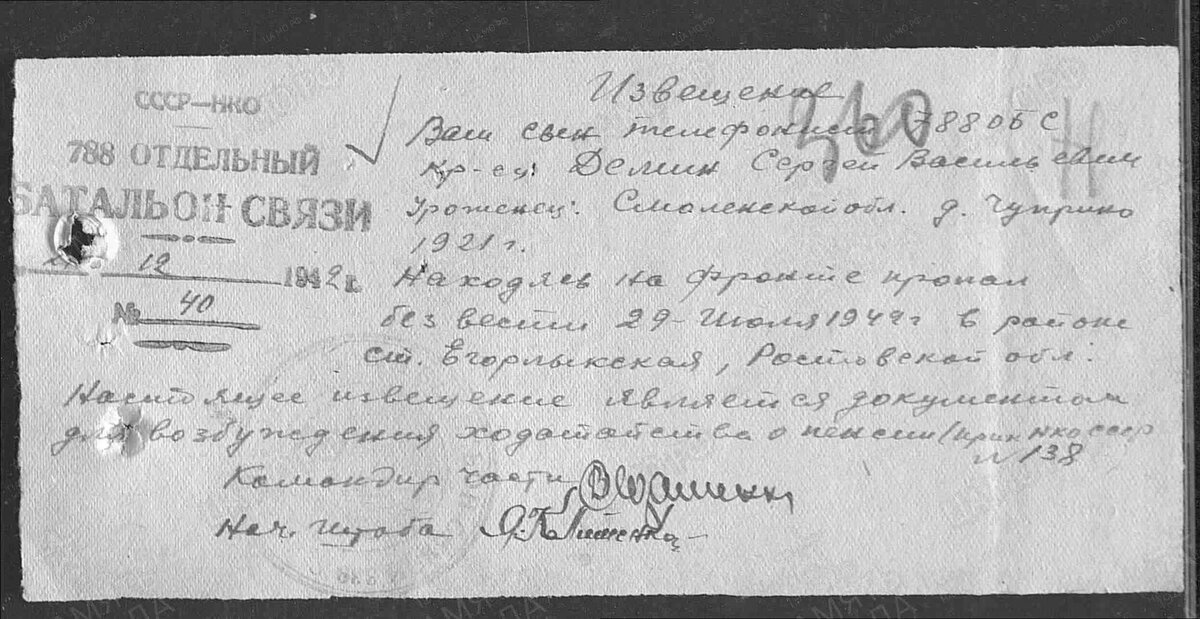 СССР—НКО
788 ОТДЕЛЬНЫЙ
БАТАЛЬОН СВЯЗИ
12 1942 г.
№ 40
Извещение
Ваш сын телефонист 788 ОБС
кр-ец: Демин Сергей Васильевич
Уроженец: Смоленской обл. д. Чуприно
1921 г.
Находясь на фронте пропал
без вести 29 Июля 1942 г в районе
ст. Егорлыкская, Ростовской обл.
Настоящее извещение является документом
для возбуждения ходатайства о пенсии (прик НКО СССР
№ 138
Командир части
Нач. Штаба